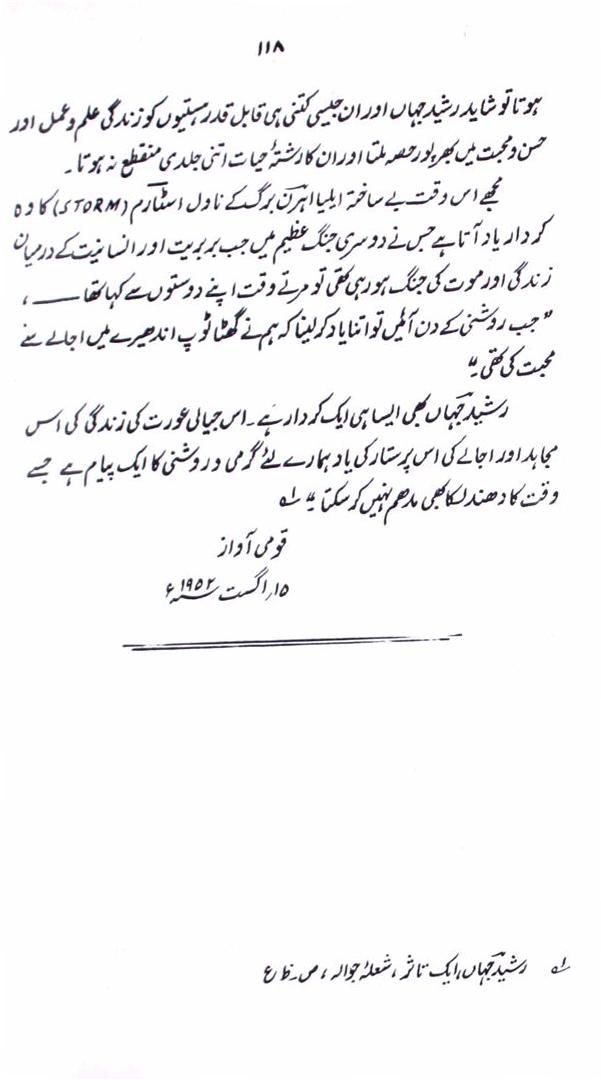 ۱۱۸
ہوتا تو شاید رشید جہاں اور ان جیسی کتنی ہی قابل قدر ہستیوں کو زندگی علم و عمل اور
حسن و محبت میں بھرپور حصہ ملتا اور ان کا رشتۂ حیات اتنی جلدی منقطع نہ ہوتا۔
مجھے اس وقت بے ساختہ ایلیا اہرن برگ کے ناول اسٹارم (STORM) کا وہ
کردار یاد آتا ہے جس نے دوسری جنگ عظیم میں جب بربریت اور انسانیت کے درمیان
زندگی اور موت کی جنگ ہو رہی تھی تو مرتے وقت اپنے دوستوں سے کہا تھا ـــــ ،
”جب روشنی کے دن آئیں تو اتنا یاد کر لینا کہ ہم نے گھٹا ٹوپ اندھیرے میں اجالے سے
محبت کی تھی۔“
رشید جہاں بھی ایسا ہی ایک کردار ہے۔ اس جیالی عورت کی زندگی کی اس
مجاہد اور اجالے کی اس پرستار کی یاد ہمارے لئے گرمی و روشنی کا ایک پیام ہے جسے
وقت کا دھندلکا بھی مدھم نہیں کر سکتا۔“ ۱؎
قومی آواز
۱۵ر اگست ۱۹۵۲ء
۱؎ رشید جہاں، ایک تاثر، شعلۂ جوالہ، ص۔ ظ ع